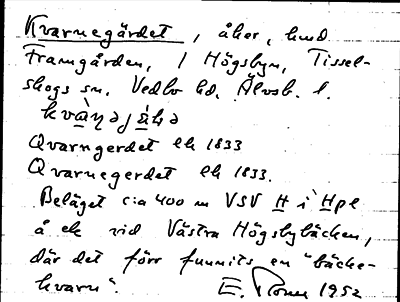 Kvarnegärdet, åker, hmd
Framgården, 1 Högsbyn, Tissel-
skogs sn. Vedbo hd. Älvsb. l.
Qvarngerdet ek 1833
Qvarnegerdet ek 1833.
Beläget c:a 400 m VSV H i Hpl
å ek vid Västra Högsbybäcken,
där det förr funnits en "bäcke-
kvarn".
E. 1952